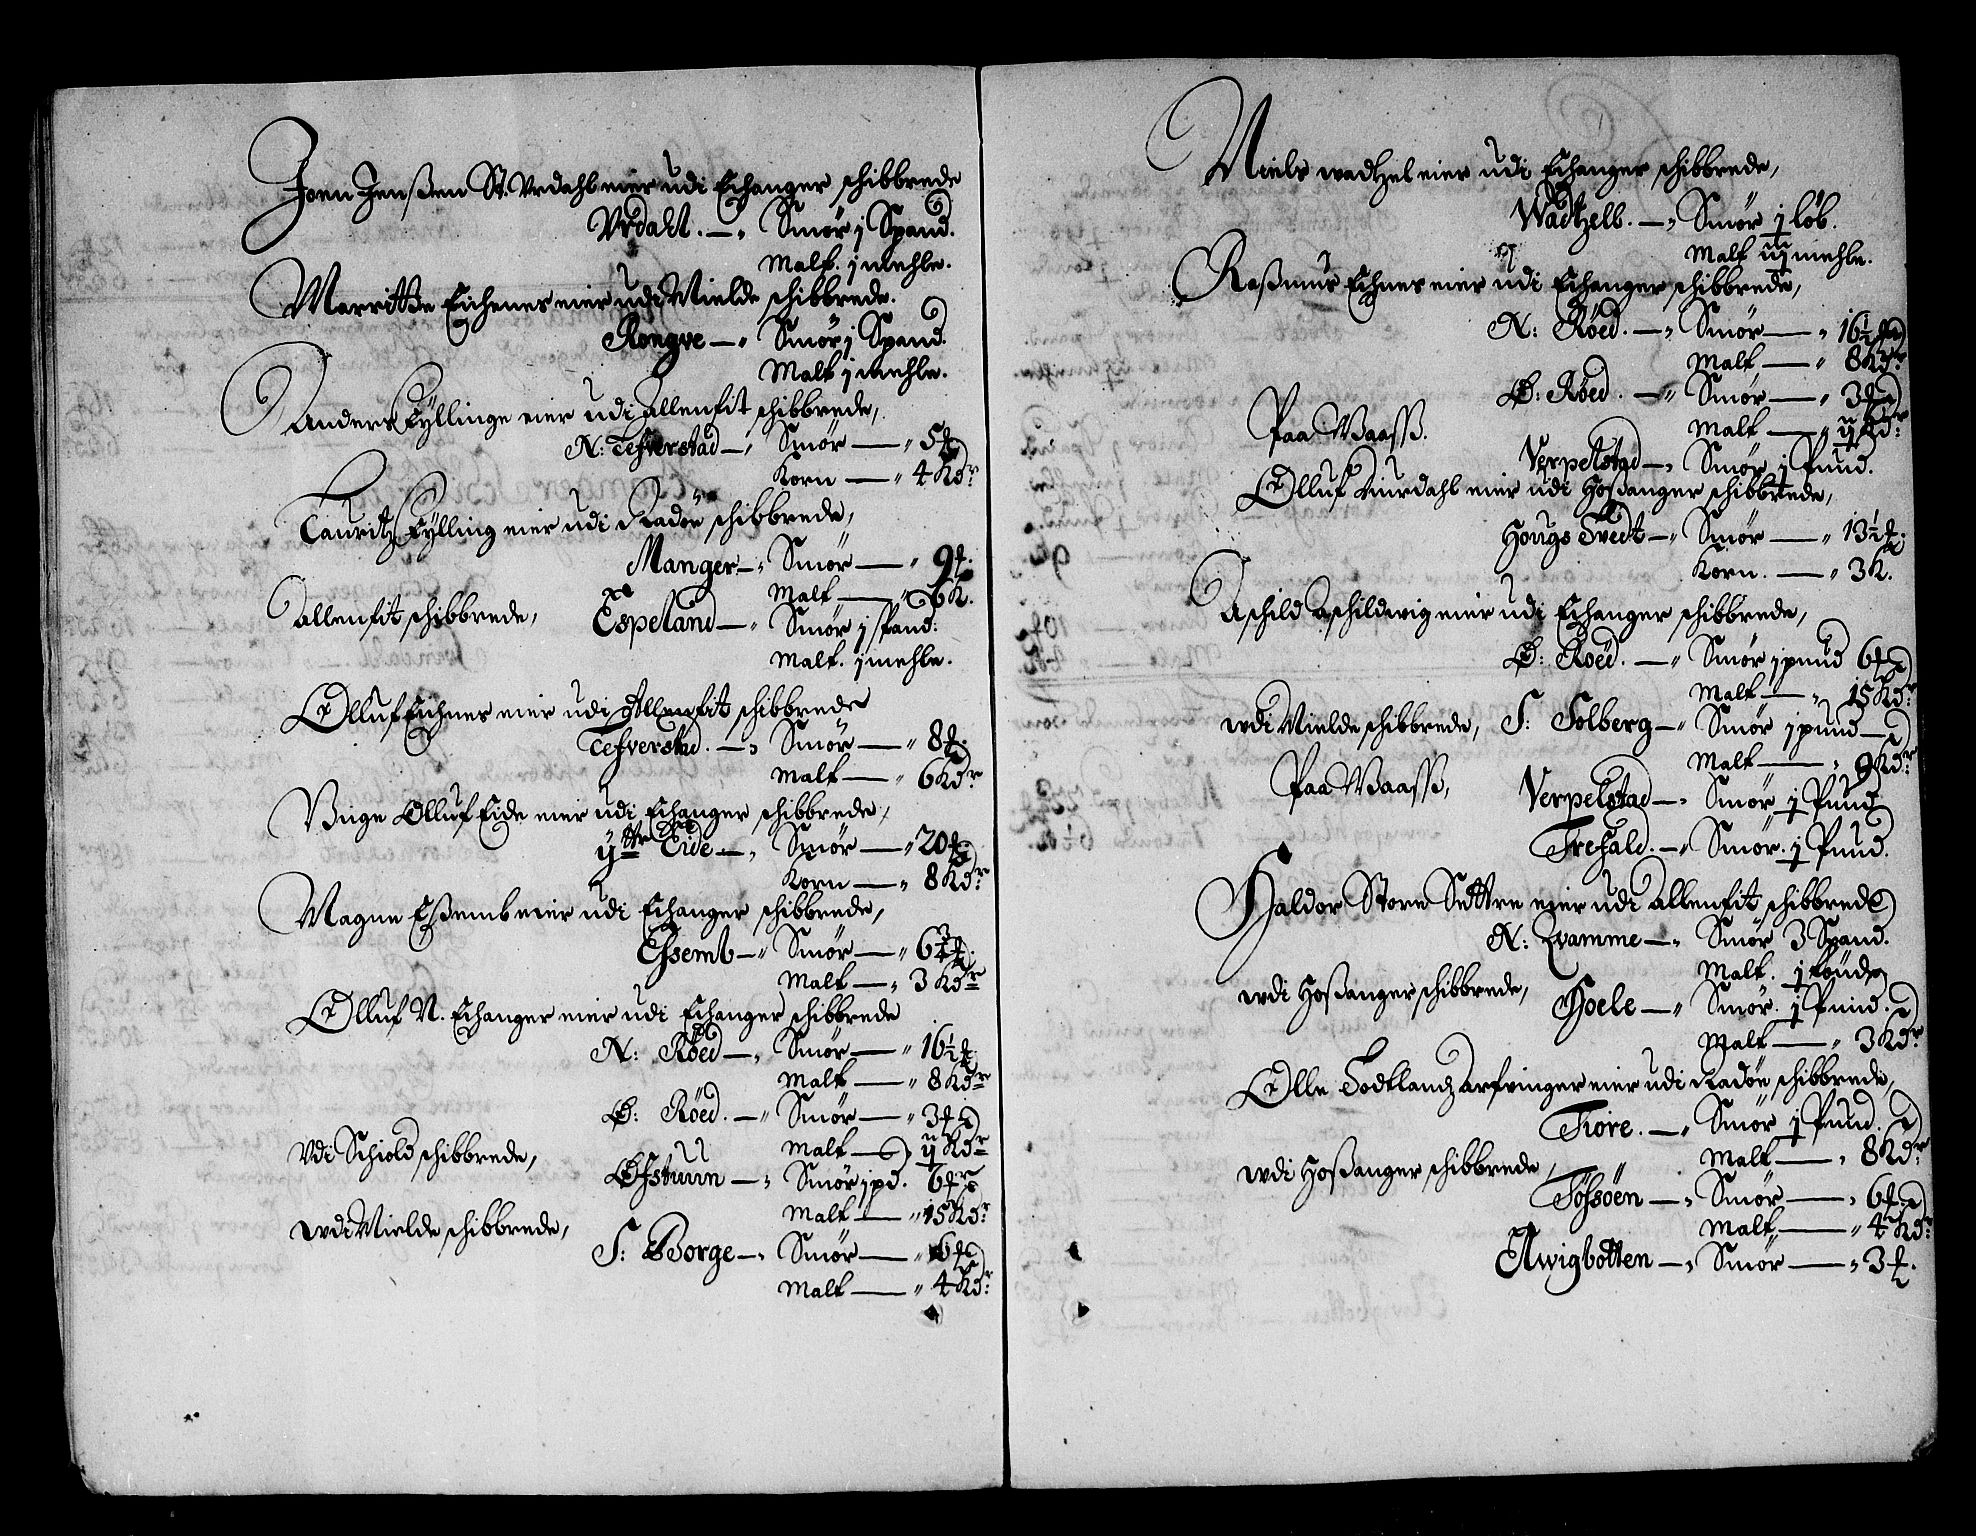 Joen Jenßen St. Vrdahl eier udi Echanger schibbrede
Vrdahl. — „ Smör j Spand.
Malt. j mehle.
Marritte Eichenes eier udi Mielde schibbrede.
Rongve — „ Smör j Spand.
Malt j mehle.
Anders Fyllinge eier udi Allenfit schibbrede,
N: Tefverstad — „ Smör — „ 5 ℔
Korn — „ 4 Kdr
Lauritz Fylling eier udi Radöe schibbrede,
Manger — „ Smör — „ 9 ℔.
Malt — „ 6 K.
Allenfit schibbrede, Espeland — „ Smör j Spand:
Malt. j mehle.
Olluf Eichnes eier udi Allenfit schibbrede
Tefverstad. — „ Smör — „ 8 ℔.
Malt — „ 6 Kdr
Unge Olluf Eide eier udi Echanger schibbrede,
ÿttr Eide — „ Smör — „ 20 ℔
Korn — „ 8 Kdr
Magne Eßemb eier udi Echanger schibbrede,
Essemb — „ Smör — „ 6 3/4 ℔
Malt — „ 3 Kdr
Olluf N. Echanger eier udi Echanger schibbrede
N: Röed — „ Smör — „ 16 1/2 ℔
Malt — „ 8 Kdr
Ö: Röed. — „ Smör — „ 3 ℔
Malt — „ ij Kdr
Vdi Schiold schibbrede, Ofstuun — „ Smör j pd. 6 ℔
Malt — „ 15 Kdr
wdi Mielde schibbrede, S: Borge — „ Smör — „ 6 ℔
Malt — „ 4 Kdr
Niels wadtzel eier udi Echanger schibbrede,
Wadtzell. — „ Smör j löb.
Malt iij mehle.
Raßmus Echnes eier udi Echanger schibbrede,
N: Röed. — „ Smör — „ 16 1/2 ℔
Malt — „ 8 Kdr
Ö: Röed. — „ Smör — „ 3 ℔
Malt — „ ij Kdr
Paa Waaß. Verpelstad — „ Smör j Pund.
Olluf Murdahl eier udi Hoßanger schibbrede,
Hougs Tvedt — „ Smör — „ 13 1/2 ℔.
Korn. — „ 3 K.
Aschild Aschildwig eier udi Echanger schibbrede,
Ö: Röed. — „ Smör j pund 6 ℔
Malt — „ 15 Kdr
wdi Mielde schibbrede, S: Solberg — „ Smör j pund —
Malt — „ 9 Kdr
Paa Waaß, Verpelstad — „ Smör j Pund
Trefald. — „ Smör. j Pund.
Haldor Store Settre eier udi Allenfit schibbrede
N: Qvamme — „ Smör 3 Spand.
Malt. j tönde
wdi Hoßanger schibbrede, Hoele — „ Smör. j Pund.
Malt — „ 3 Kdr
Olle Todtlandz arfvinger eier udi Radöe schibbrede,
Fiore. — „ Smör j Pund.
Malt — „ 8 Kdr
wdi Hoßanger schibbrede, Tössöen — „ Smör — „ 6 ℔
Malt — „ 4 Kdr
Awigbotten — „ Smör — „ 3 ℔.